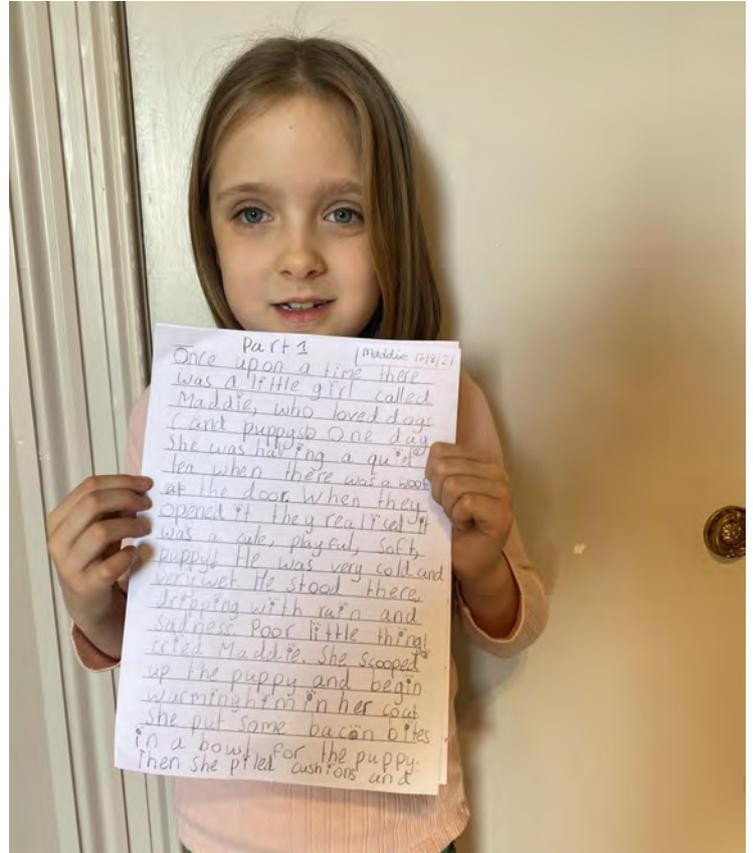 Part 1
Maddie 17/8/21
Once upon a time there
was a little girl called
Maddie, who loved dogs
(and puppys) One day
She was having a quiet
tea when there was a woof
at the door. When they
opened it they realised it
was a cute, playful, soft,
puppy! He was very cold and
very wet He stood there,
dripping with rain and
sadness. Poor little thing!
cried Maddie. She scooped
up the puppy and begin
warming him in her coat
she put some bacon bites
in a bowl for the puppy.
Then she piled cushions and